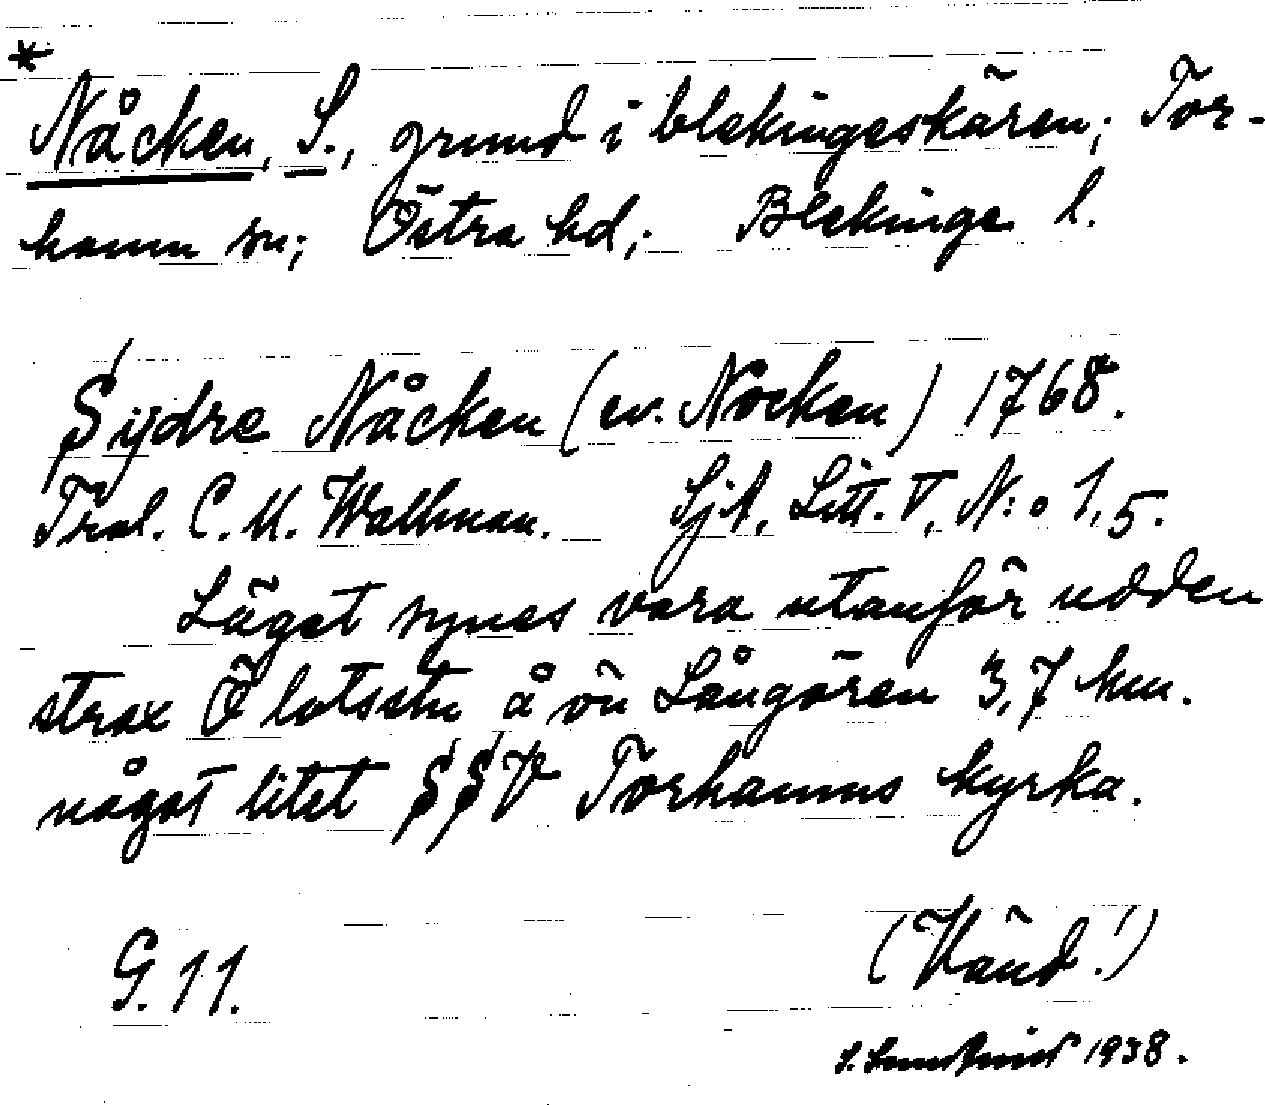 *
Nåcken, S., grund i blekingeskären; Tor-
hamn sn; Östra hd; Blekinge l.
Sijdre Nåcken (ev. Nocken) 1768.
C. U. Wallman. SjA, Litt. V, N:o 1,5.
Läget synes vara utanför udden
strax Ö lotsstn å ön Långören 3,7 km.
något litet SSV Torhamns kyrka.
G. 11. (Vänd!)
S. 1938.